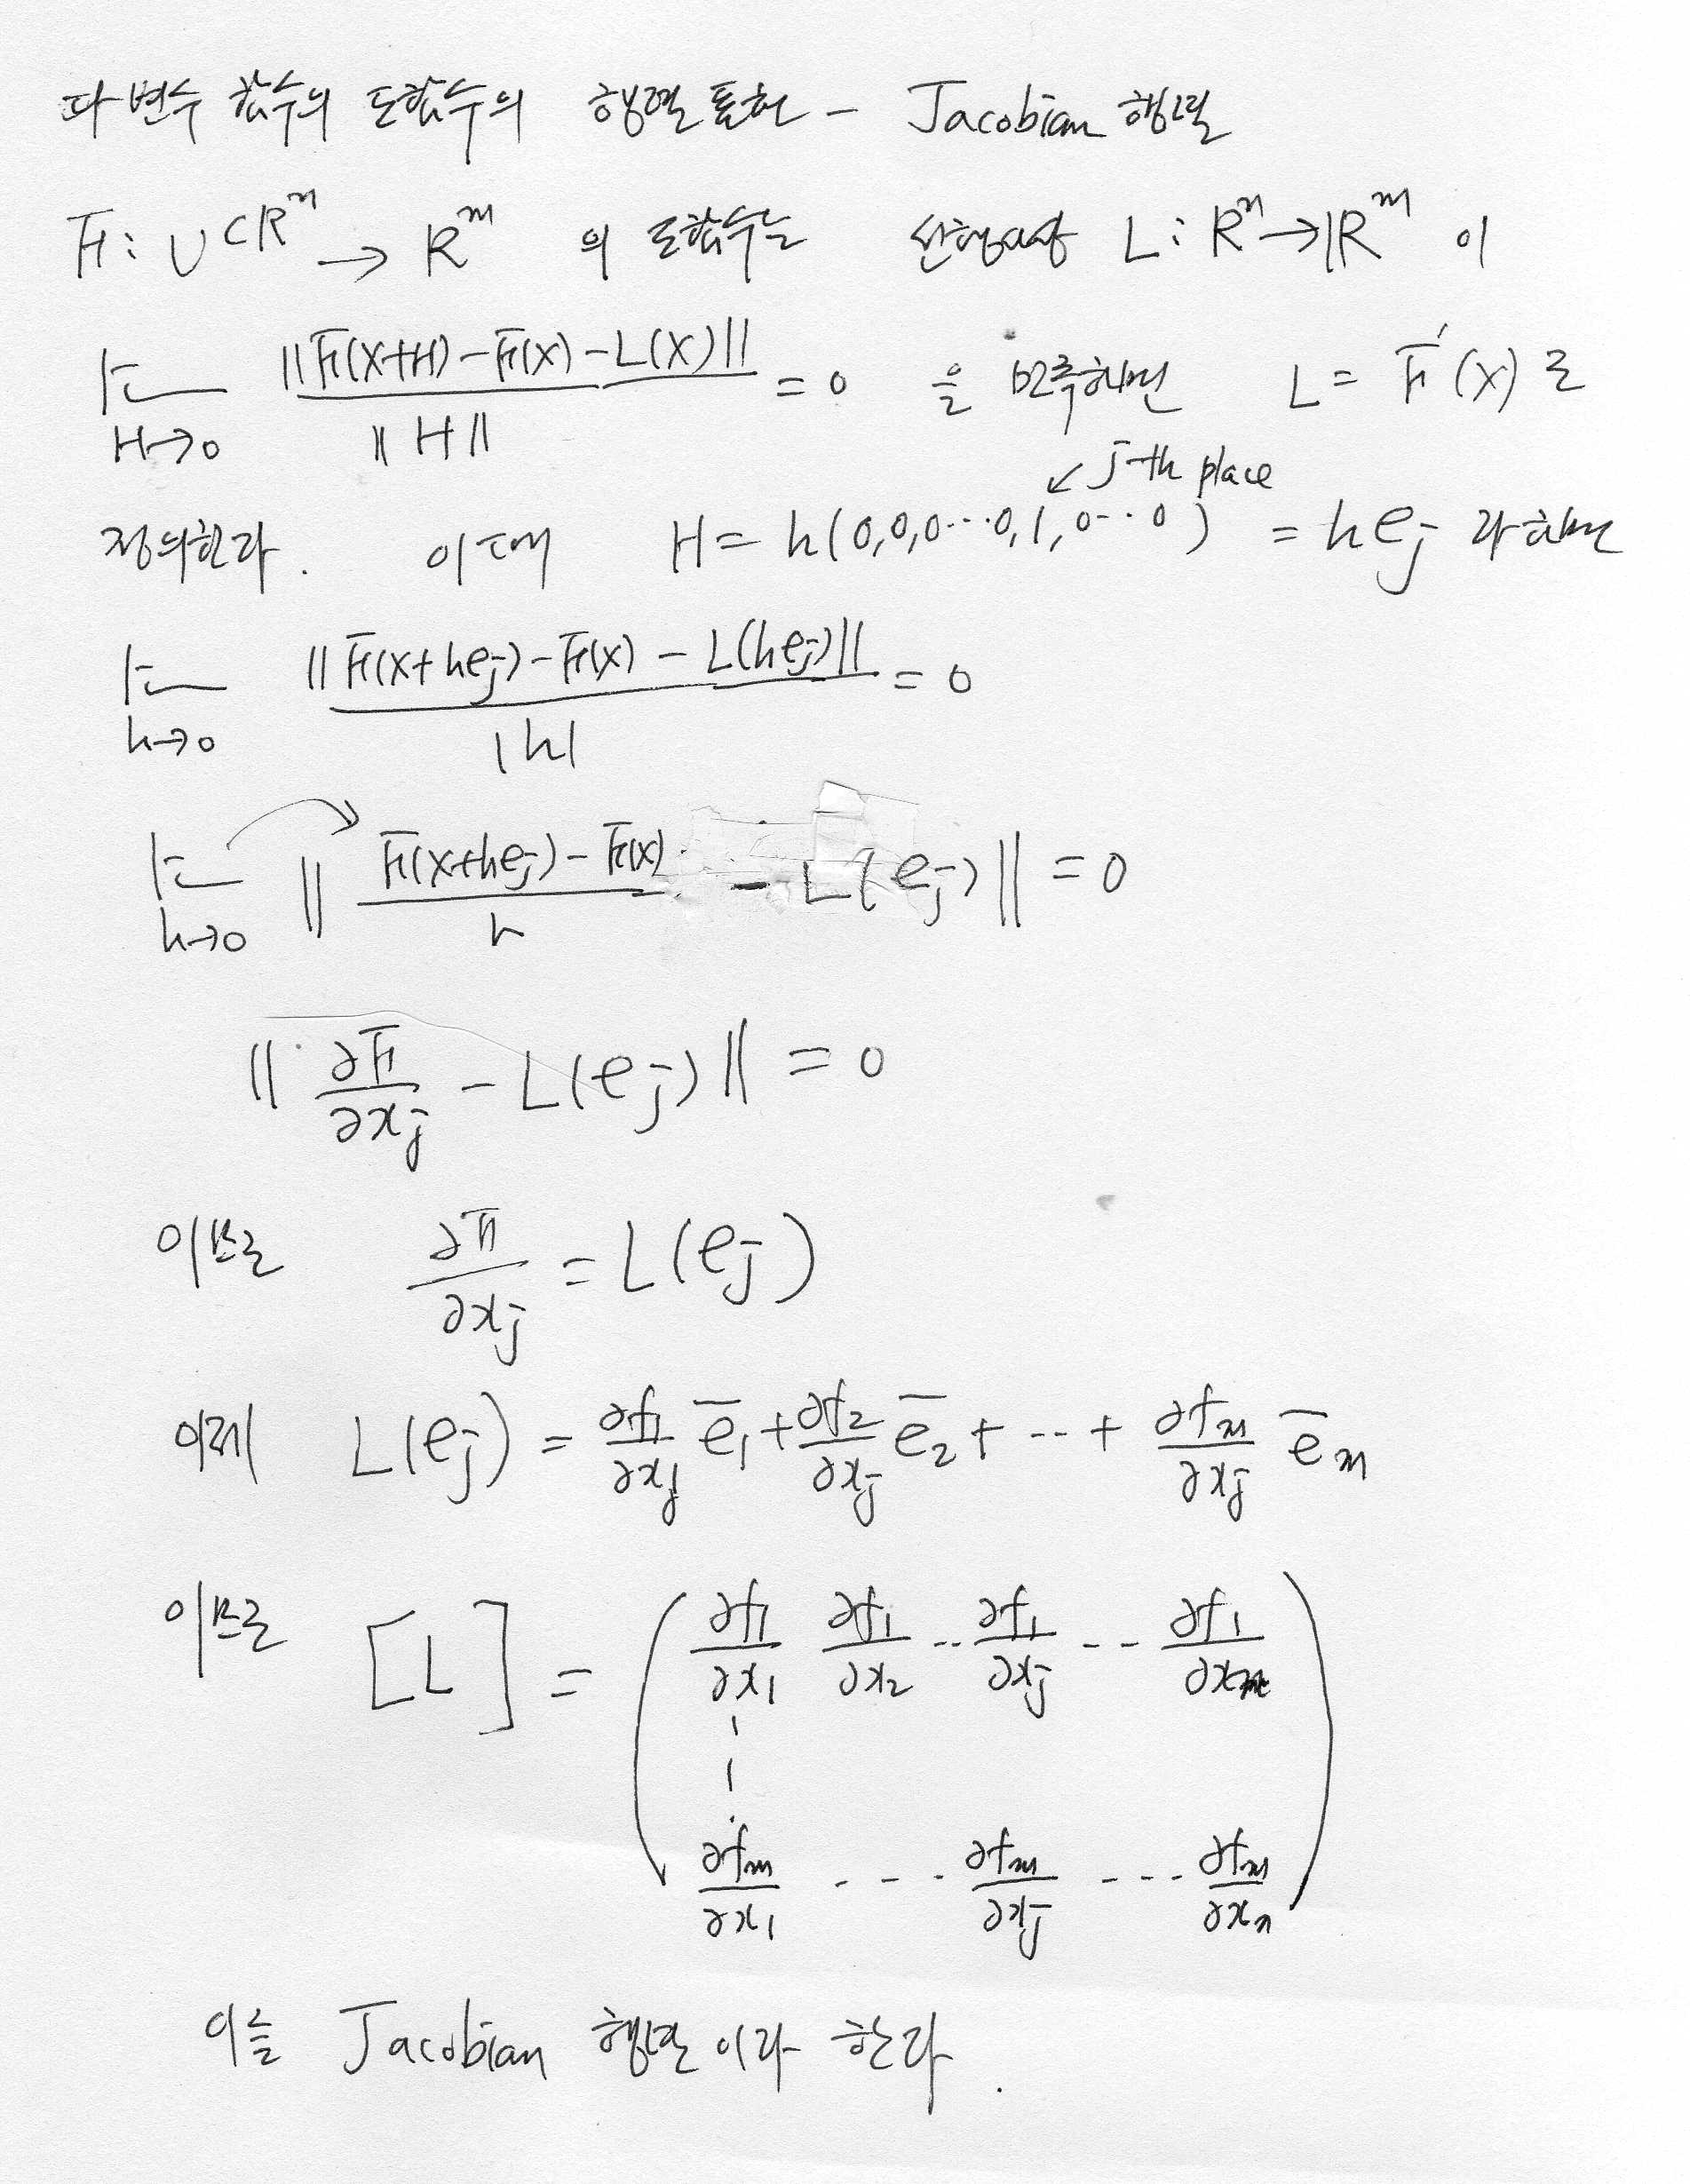 다변수 함수의 도함수의 행렬표현 - Jacobian 행렬
F: U⊂R^n → R^m 의 도함수는 선형사상 L: R^n → R^m 이
lim_{H→0} ||F(X+H)-F(X)-L(X)|| / ||H|| = 0 을 만족하면 L = F'(X) 로
↙ j-th place
정의한다. 이때 H = h(0,0,0···0,1,0···0) = he_j 라하면
lim_{h→0} ||F(X+he_j)-F(X)-L(he_j)|| / |h| = 0
lim_{h→0} || (F(X+he_j)-F(X)) / h - L(e_j) || = 0
|| ∂F/∂x_j - L(e_j) || = 0
이므로 ∂F/∂x_j = L(e_j)
이제 L(e_j) = ∂f_1/∂x_j e̅_1 + ∂f_2/∂x_j e̅_2 + ··· + ∂f_m/∂x_j e̅_m
이므로 [L] = ( ∂f_1/∂x_1 ∂f_1/∂x_2 ·· ∂f_1/∂x_j ·· ∂f_1/∂x_n
⋮
∂f_m/∂x_1 ··· ∂f_m/∂x_j ··· ∂f_m/∂x_n )
이를 Jacobian 행렬이라 한다.